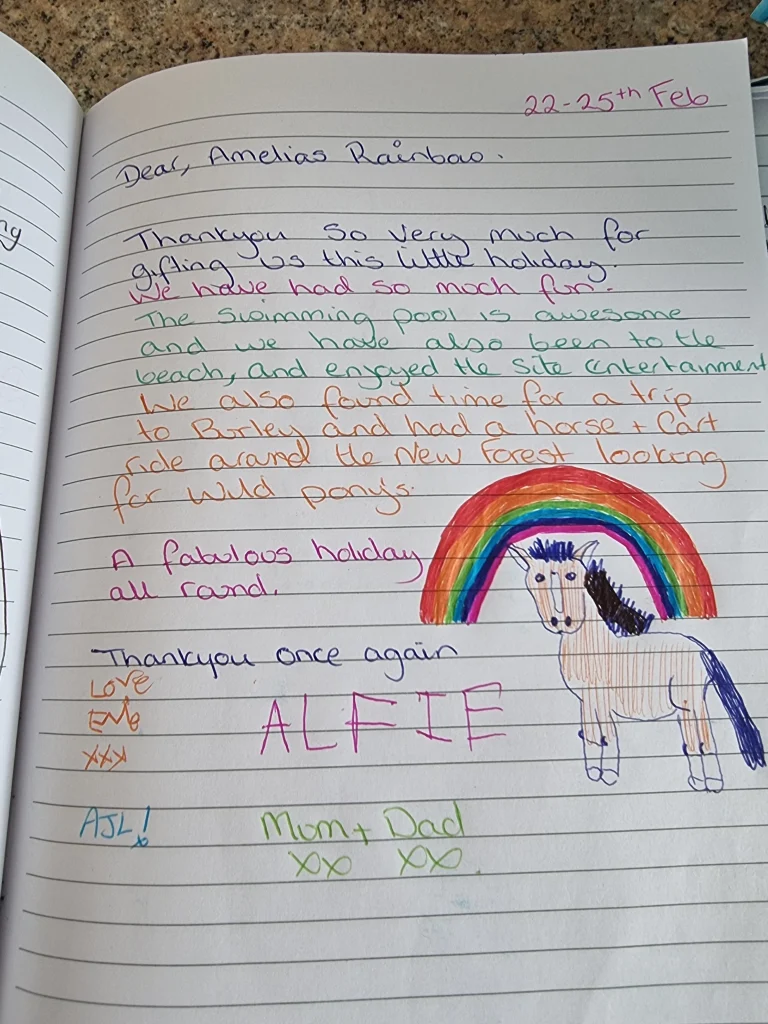 ng
22-25th Feb
Dear, Amelias Rainbow.
Thankyou so very much for
gifting us this little holiday.
We have had so much fun.
The swimming pool is awesome
and we have also been to the
beach, and enjoyed the site entertainment
We also found time for a trip
to Burley and had a horse + cart
ride around the New Forest looking
for wild pony's.
A fabulous holiday
all round.
Thankyou once again
Love
ALFIE
xxx
AJL!
Mum + Dad
xx xx.